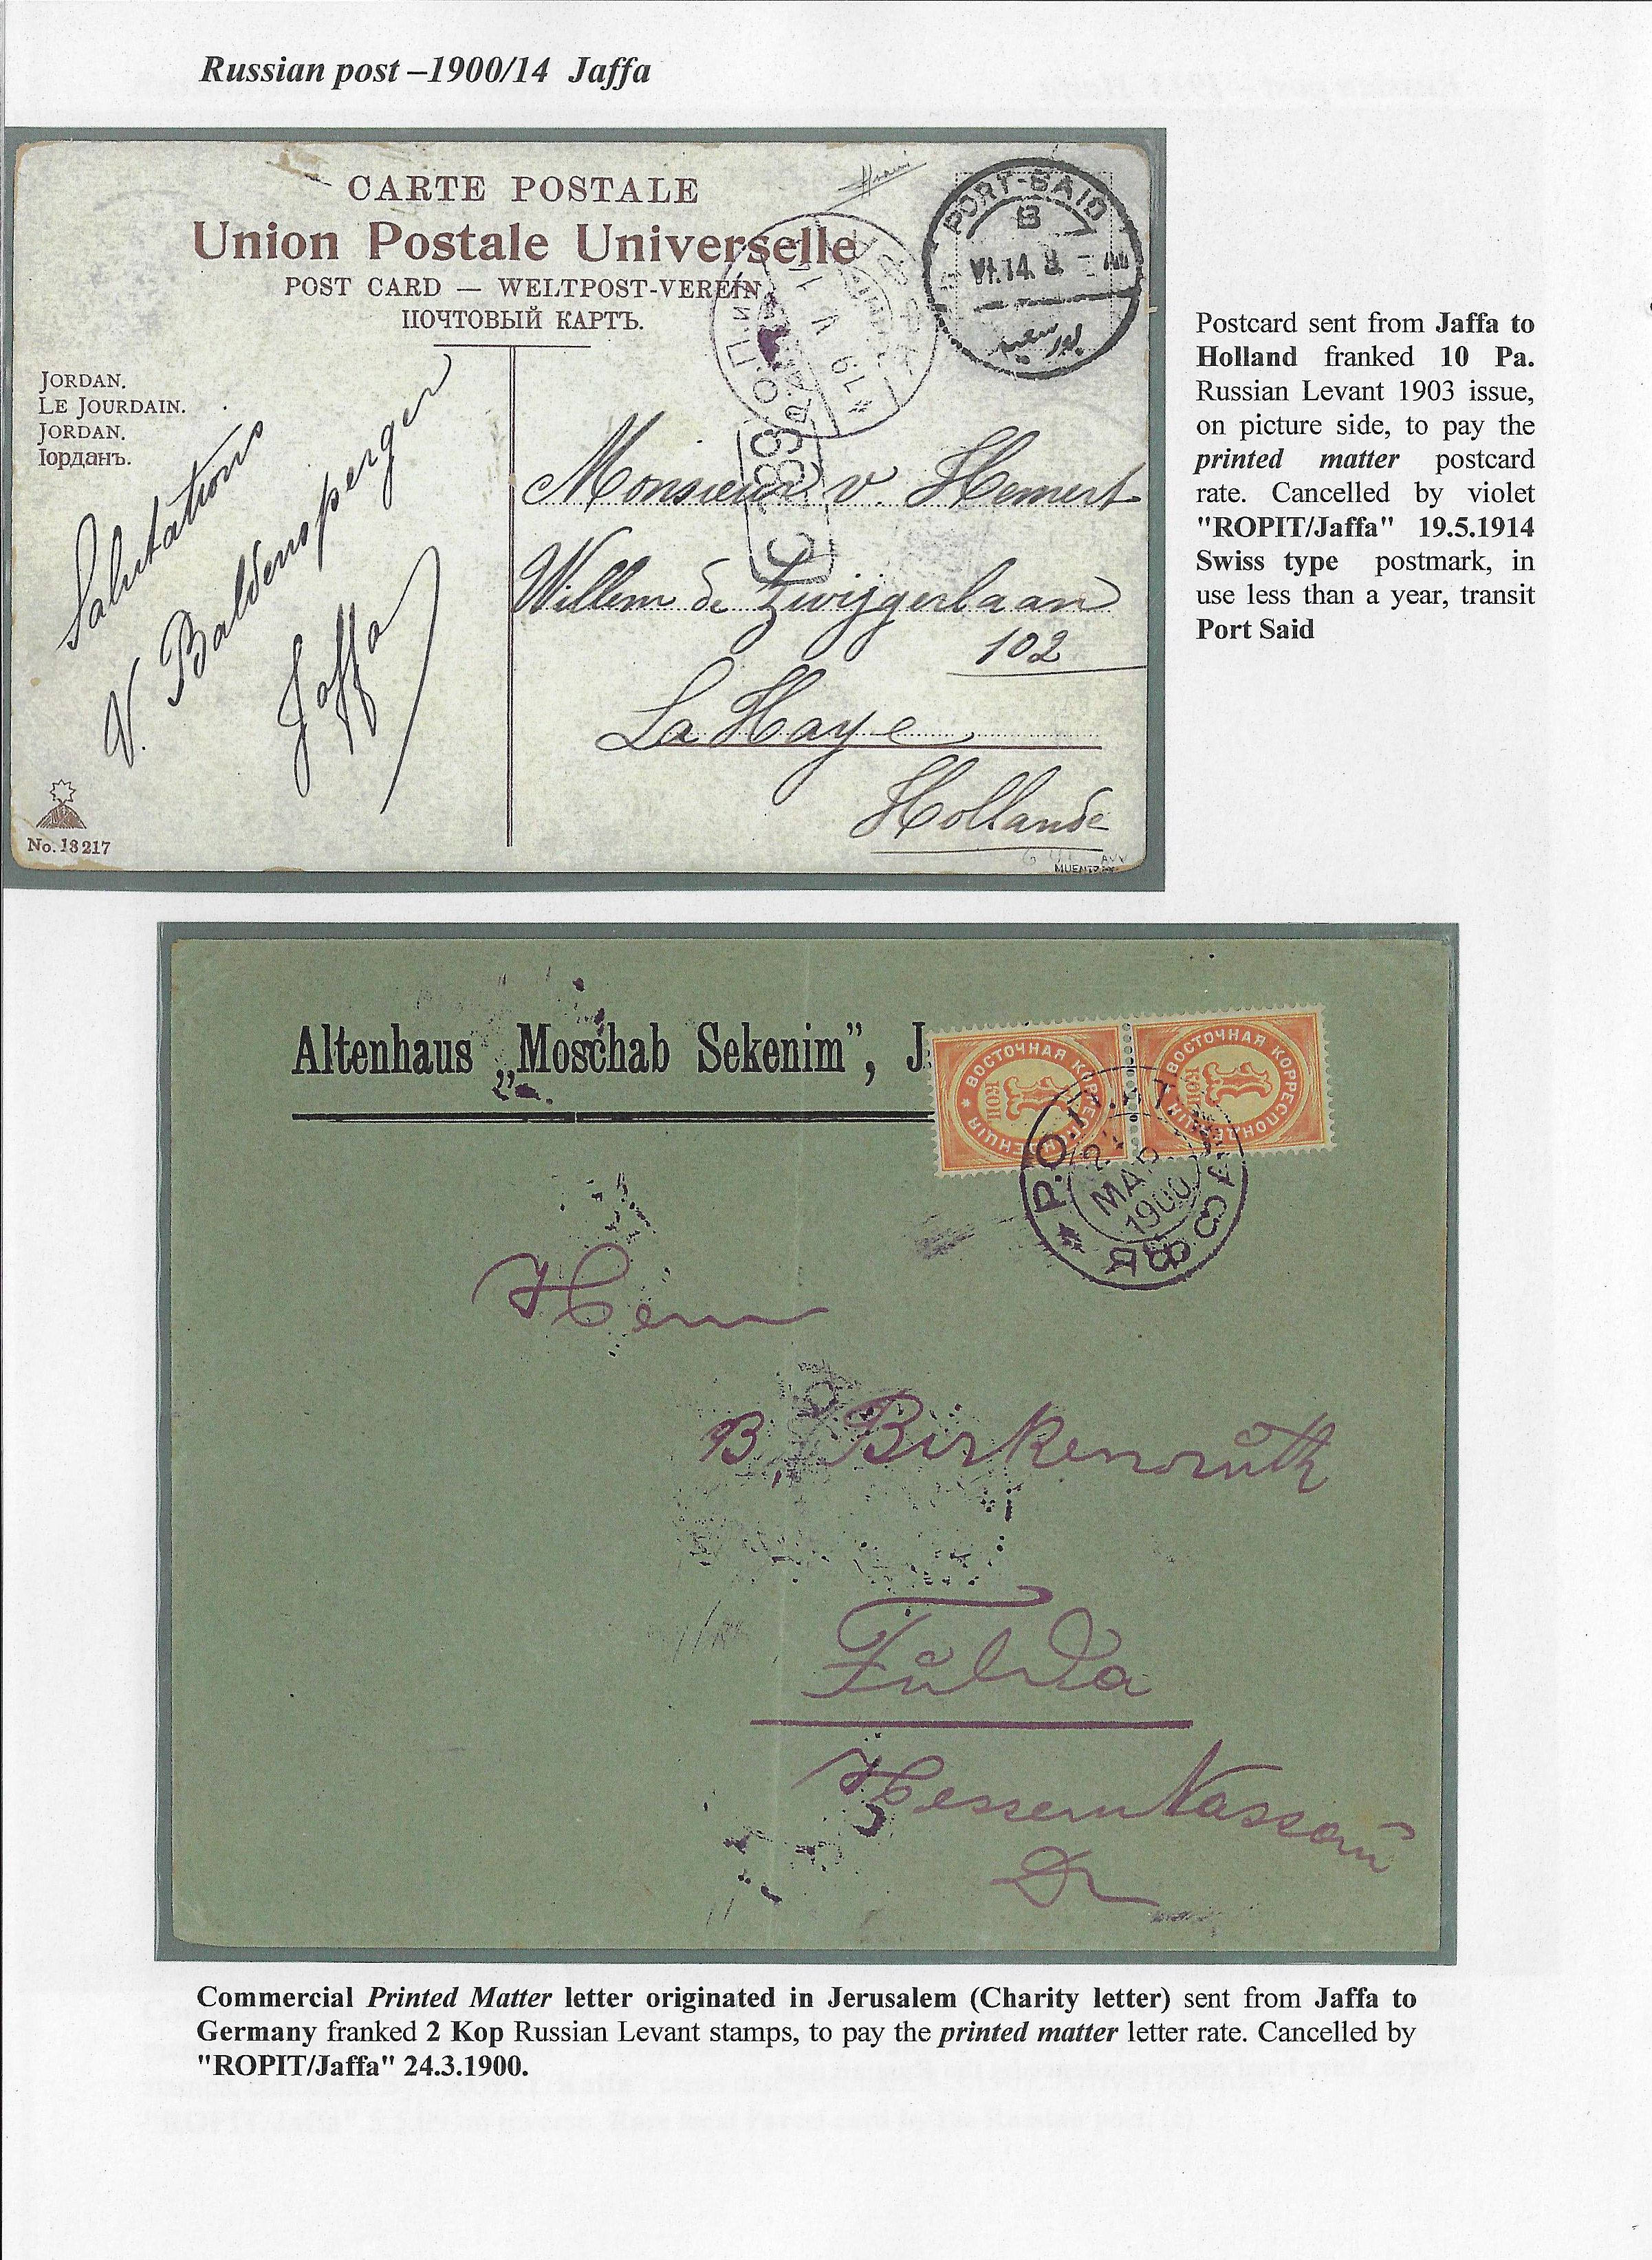 Russian post –1900/14 Jaffa
CARTE POSTALE
Union Postale Universelle
POST CARD — WELTPOST-VEREIN
ПОЧТОВЫЙ КАРТЪ.
PORT-SAID
B
VI.14. 8
بور سعيد
JORDAN.
LE JOURDAIN.
JORDAN.
Іорданъ.
Salutations
V. Baldensperger
Jaffa
No. 13217
Monsieur v. Hemert
Willem de Zwijgerlaan
102
La Haye
Hollande
Postcard sent from Jaffa to
Holland franked 10 Pa.
Russian Levant 1903 issue,
on picture side, to pay the
printed matter postcard
rate. Cancelled by violet
"ROPIT/Jaffa" 19.5.1914
Swiss type postmark, in
use less than a year, transit
Port Said
Altenhaus „Moschab Sekenim”, J
ВОСТОЧНАЯ КОРРЕСПОНДЕНЦІЯ
1 КОП
ВОСТОЧНАЯ КОРРЕСПОНДЕНЦІЯ
1 КОП
Р.О.П.и Т. ЯФФА
24 МАР 1900
Herrn
B. Birkenruth
Fulda
Hessen Nassau
Commercial Printed Matter letter originated in Jerusalem (Charity letter) sent from Jaffa to
Germany franked 2 Kop Russian Levant stamps, to pay the printed matter letter rate. Cancelled by
"ROPIT/Jaffa" 24.3.1900.